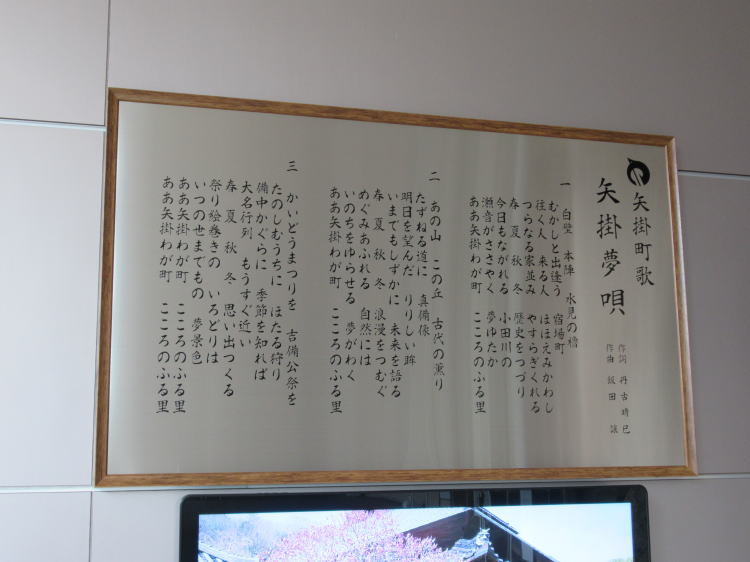 矢掛町歌
矢掛夢唄
作詞 丹古晴巳
作曲 飯田 譲
一 白壁 本陣 水見の櫓
むかしと出逢う 宿場町
往く人 来る人 ほほえみかわし
つらなる家並み やすらぎくれる
春 夏 秋 冬 歴史をつづり
今日もながれる 小田川の
瀬音がささやく 夢ゆたか
ああ矢掛わが町 こころのふる里
二 あの山 この丘 古代の薫り
たずねる道に 真備像
明日を望んだ りりしい眸
いまでもしずかに 未来を語る
春 夏 秋 冬 浪漫をつむぐ
めぐみあふれる 自然には
いのちをゆらせる 夢がわく
ああ矢掛わが町 こころのふる里
三 かいどうまつりを 吉備公祭を
たのしむうちに ほたる狩り
備中かぐらに 季節を知れば
大名行列 もうすぐ近い
春 夏 秋 冬 思い出つくる
祭り絵巻きの いろどりは
いつのせまでもの 夢景色
ああ矢掛わが町 こころのふる里
ああ矢掛わが町 こころのふる里